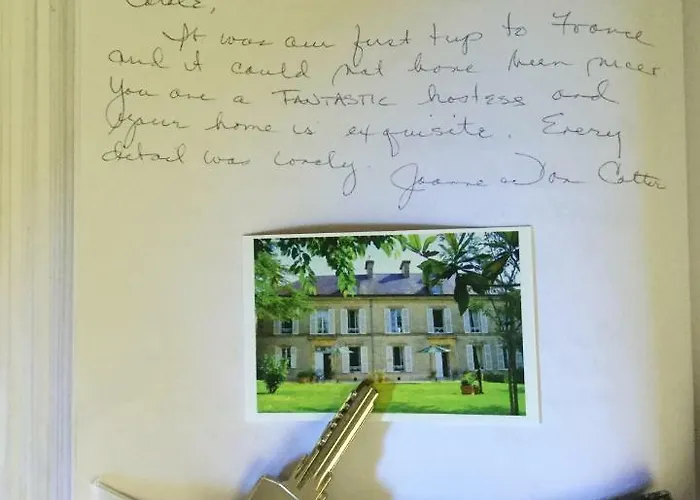 Carole,
It was our first trip to France
and it could not have been nicer
You are a FANTASTIC hostess and
your home is exquisite. Every
detail was lovely. Joanne & Don Cotter